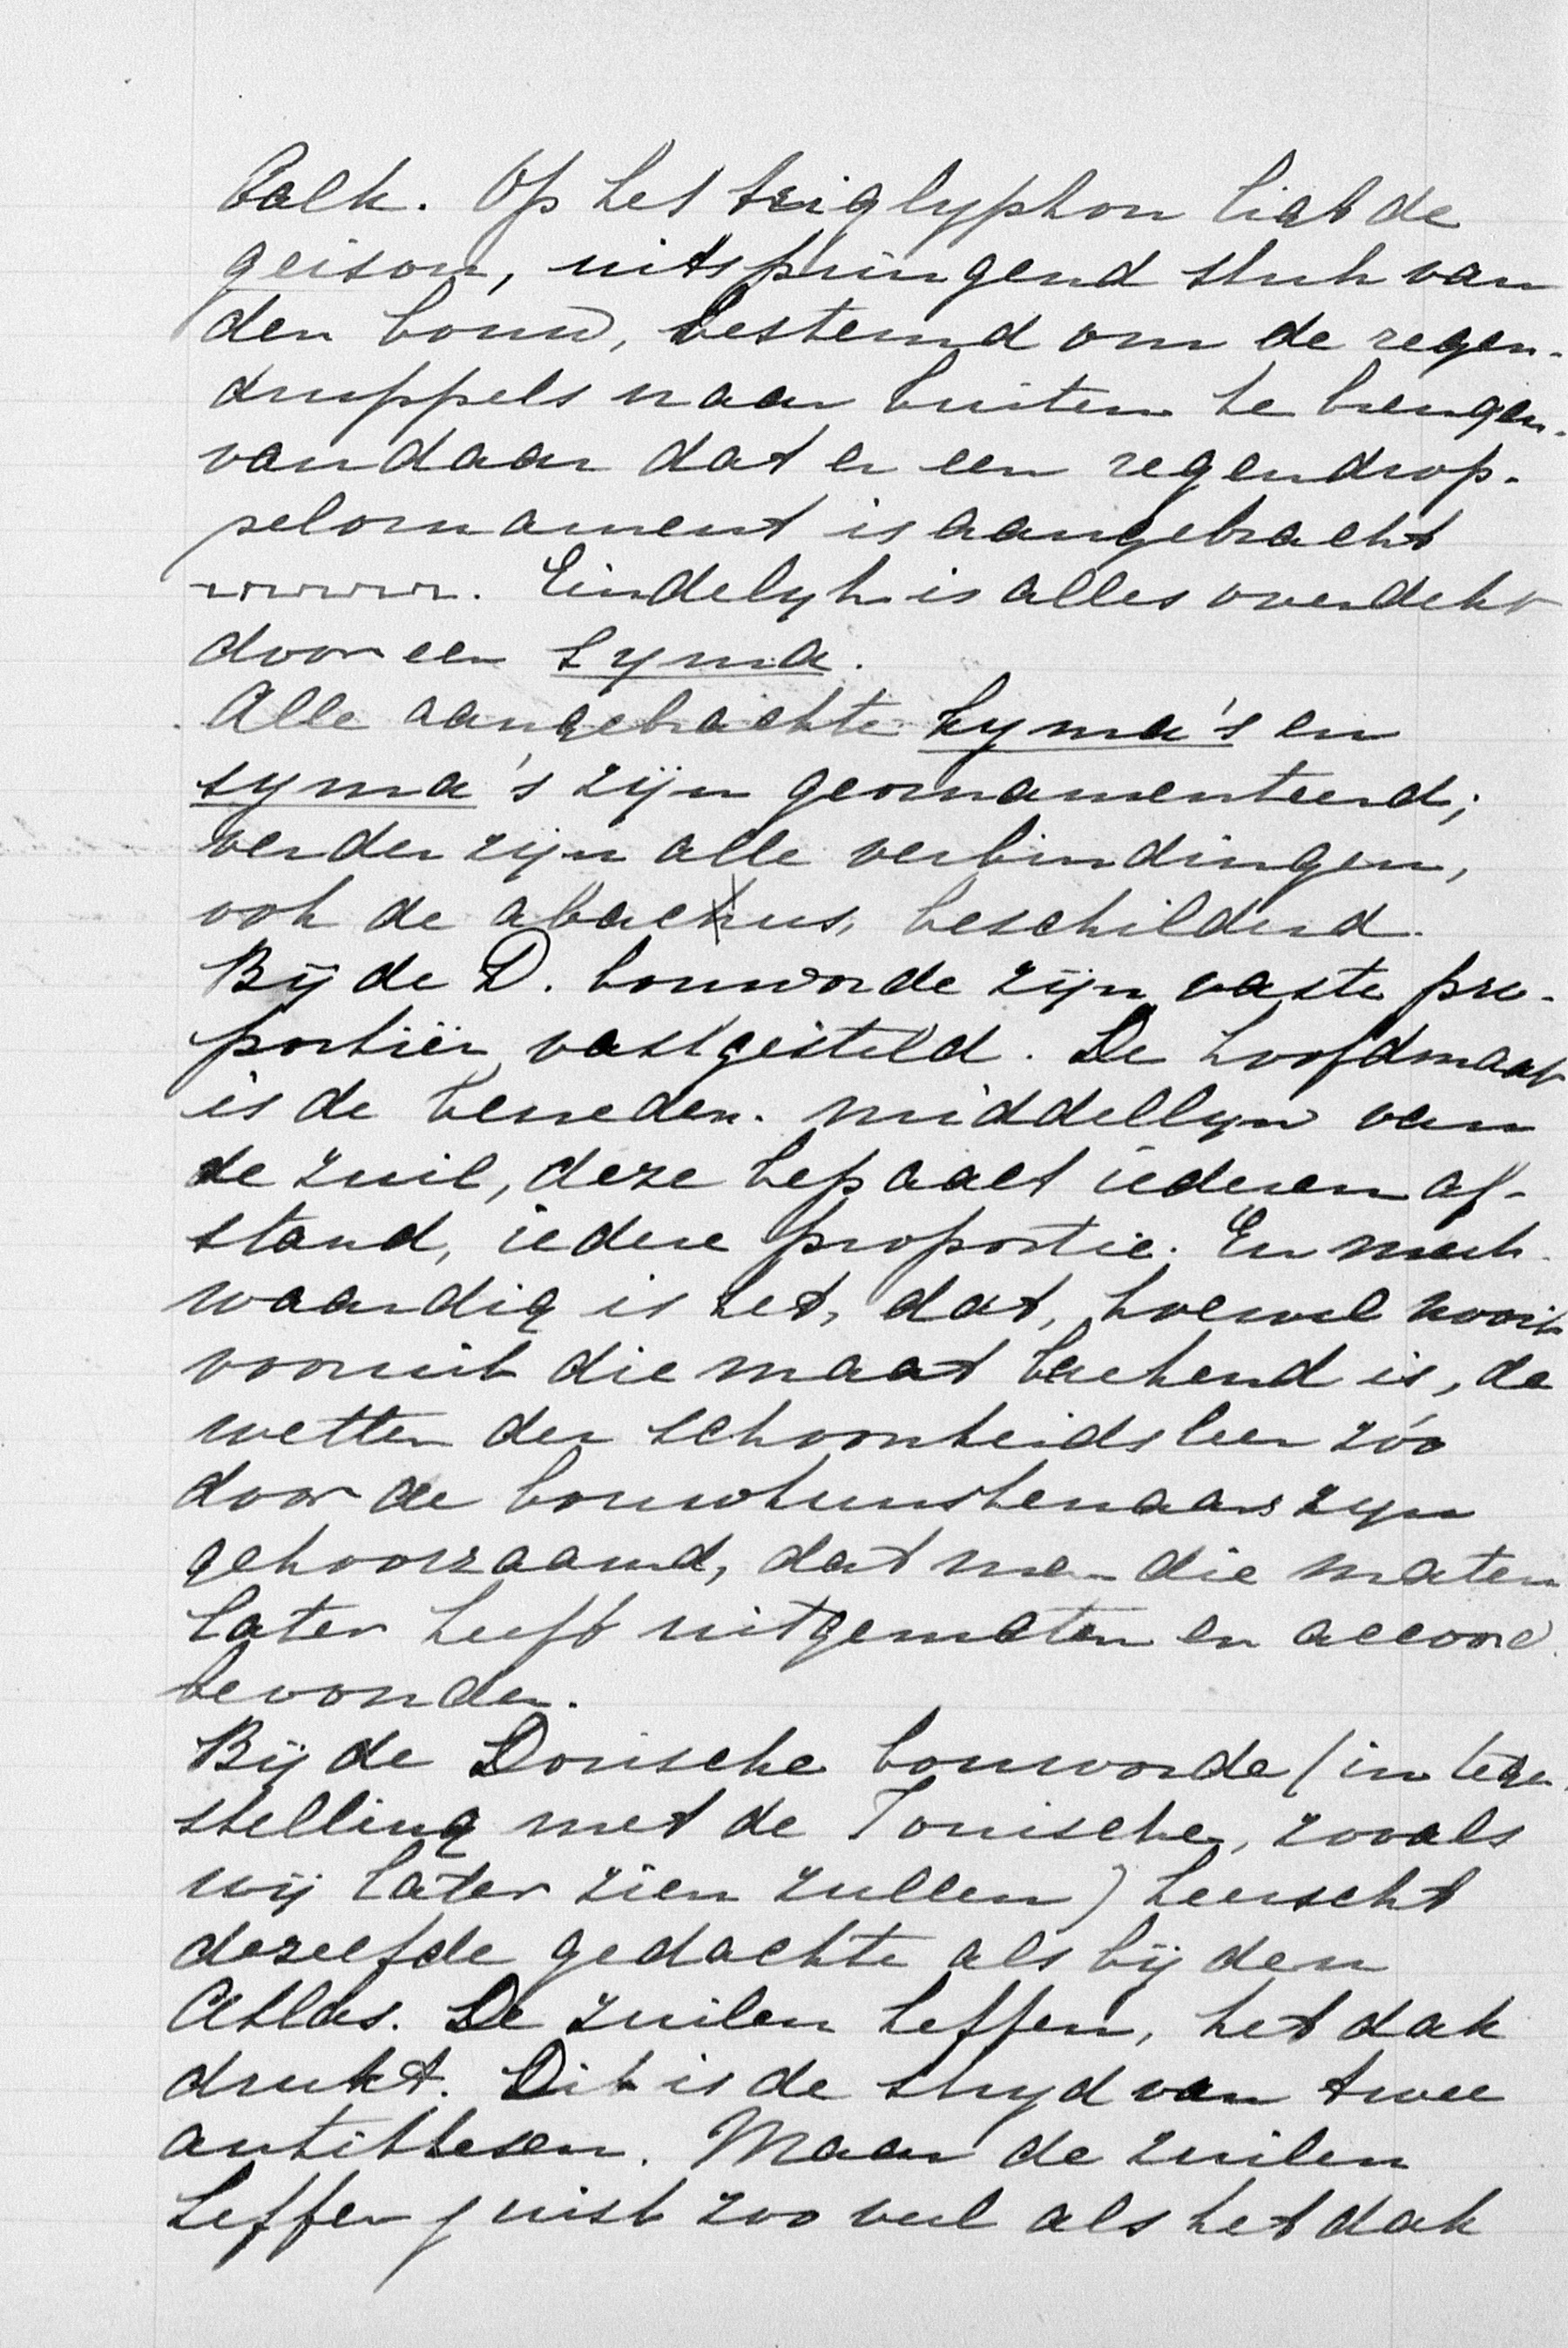 balk. Op het triglyphon ligt de
geison, uitspringend stuk van
den bouw, bestemd om de regen-
druppels naar buiten te brengen.
vandaar dat er een regendrop-
pelornament is aangebracht
. Eindelyk is alles overdekt
door een syma.
Alle aangebrachte kyma's en
syma's zijn geornamenteerd;
verder zijn alle verbindingen,
ook de abacus, beschilderd.
Bij de D. bouworde zijn vaste pro-
portiën vastgesteld. De hoofdmaat
is de beneden-middellyn van
de zuil, deze bepaalt iederen af-
stand, iedere proportie. En merk-
waardig is het, dat, hoewel nooit
vooruit die maat berekend is, de
wetten der schoonheidsleer zóo
door de bouwkunstenaars zyn
gehoorzaamd, dat men die maten
later heeft uitgemeten en accoord
bevonden.
Bij de Dorische bouworde (in tegen-
stelling met de Ionische, zooals
wij later zien zullen) heerscht
dezelfde gedachte als bij den
Atlas. De zuilen heffen, het dak
drukt. Dit is de stryd van twee
antithesen. Maar de zuilen
heffen juist zoo veel als het dak